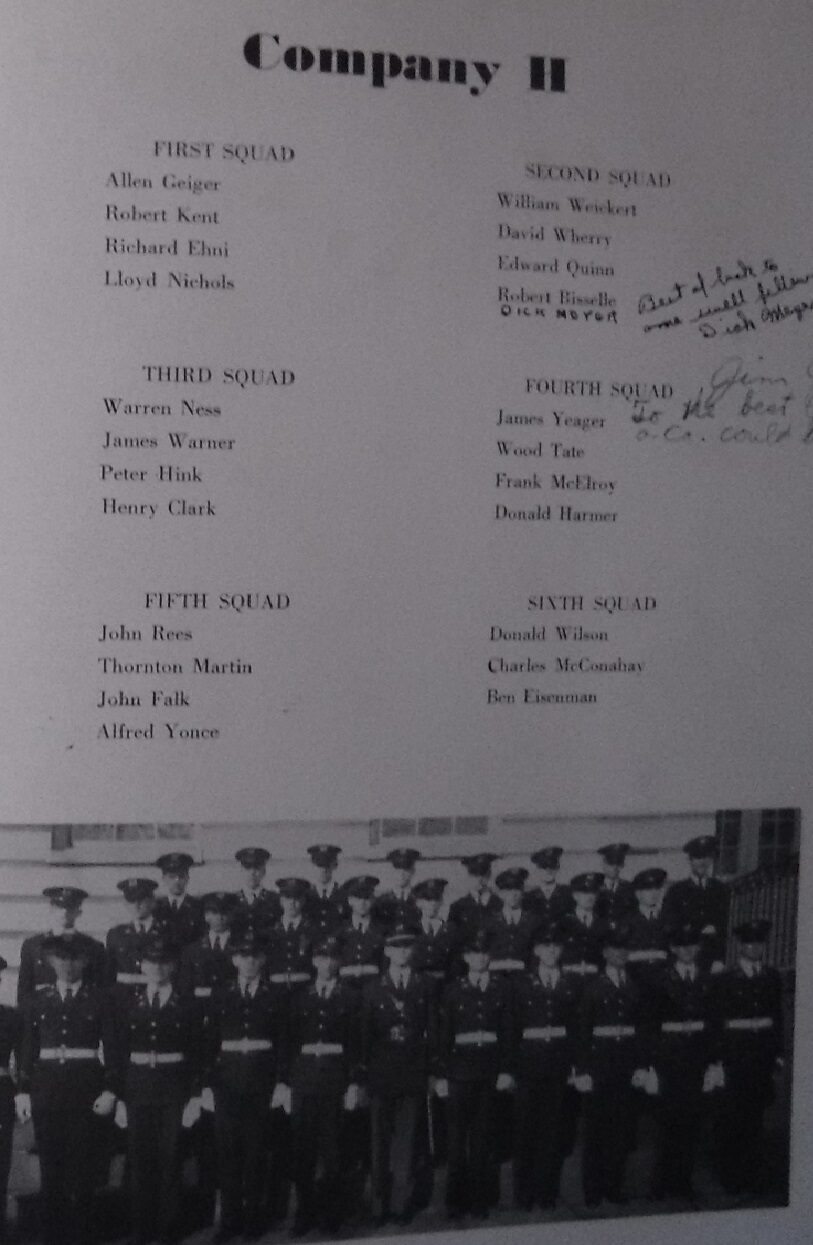 Company H
FIRST SQUAD
Allen Geiger
Robert Kent
Richard Ehni
Lloyd Nichols
SECOND SQUAD
William Weickert
David Wherry
Edward Quinn
Robert Bisselle
DICK MEYER
Best of luck to
one swell fellow
Dick Meyer
THIRD SQUAD
Warren Ness
James Warner
Peter Hink
Henry Clark
FOURTH SQUAD
James Yeager
Wood Tate
Frank McElroy
Donald Harmer
Jim
To the best
a Co. could
FIFTH SQUAD
John Rees
Thornton Martin
John Falk
Alfred Yonce
SIXTH SQUAD
Donald Wilson
Charles McConahay
Ben Eisenman